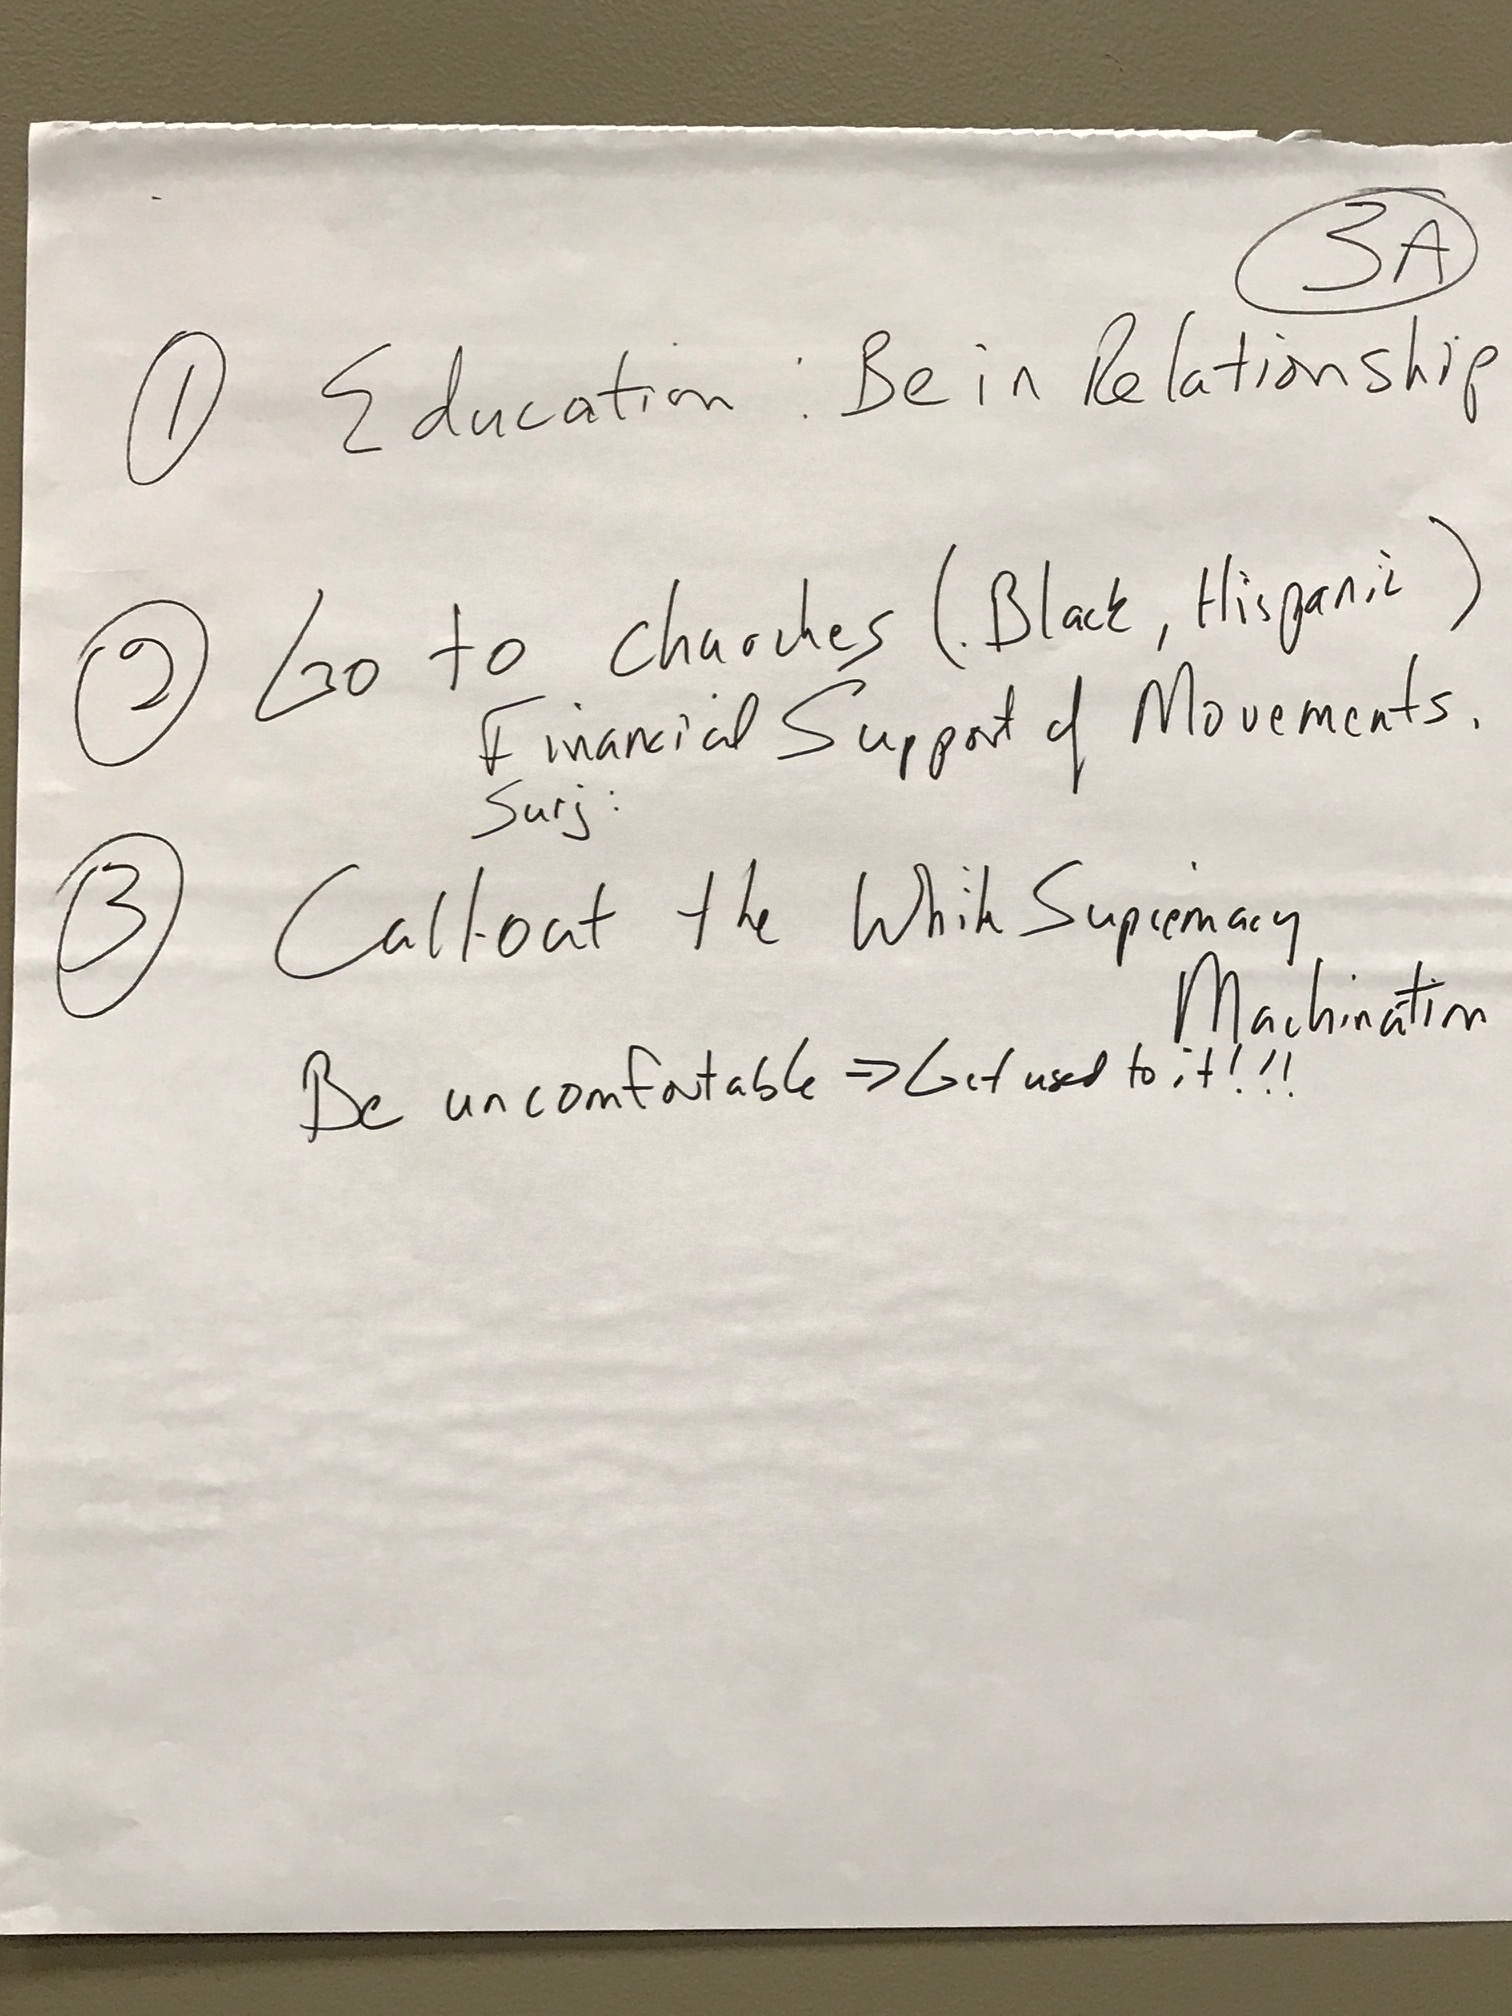 3A
① Education : Be in Relationship
② Go to churches (Black, Hispanic)
Financial Support of Movements.
Surj:
③ Call-out the White Supremacy
Machination
Be uncomfortable ⇒ Get used to it!!!